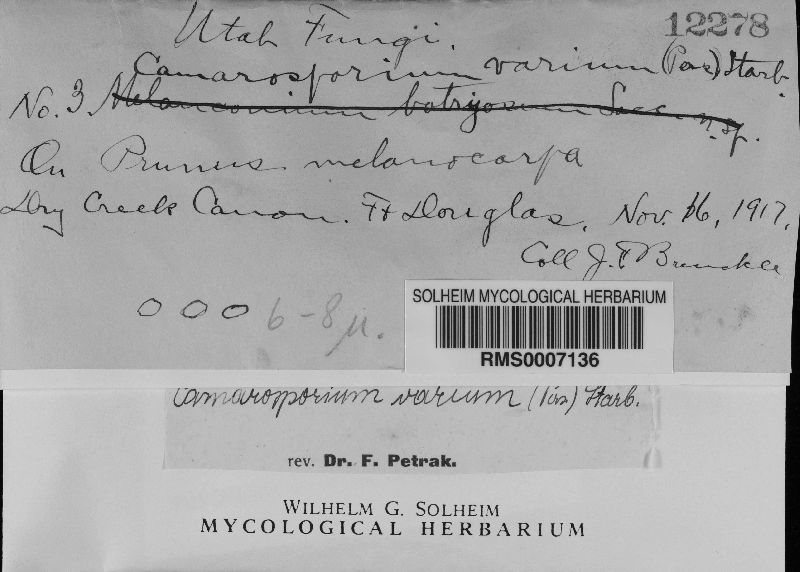 12278
Utah Fungi.
Camarosporium varium (Pers) Starb.
No. 3 Melanconium botryosum Sacc. n. sp.
On Prunus melanocarpa
Dry Creek Canon. Ft Douglas, Nov. 16, 1917,
Coll J. F. Brenckle
000 6-8 µ.
SOLHEIM MYCOLOGICAL HERBARIUM
RMS0007136
Camarosporium varium (Pers) Starb.
rev. Dr. F. Petrak.
WILHELM G. SOLHEIM
MYCOLOGICAL HERBARIUM